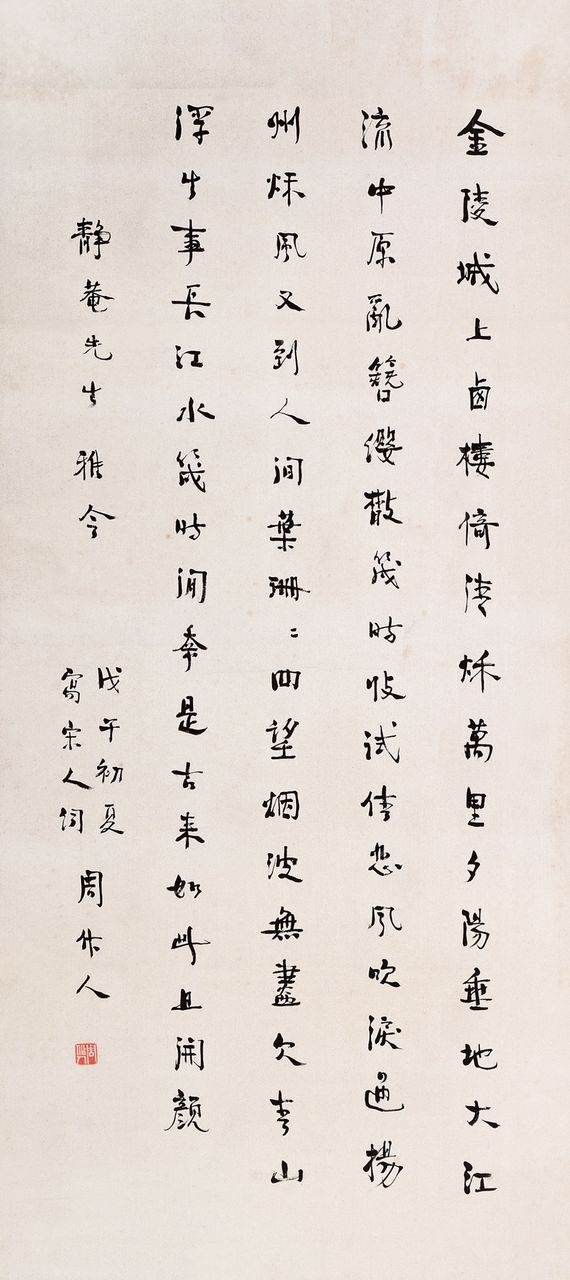 金陵城上卥樓倚清秌萬里夕陽垂地大江
流中原亂簪纓散幾時收試倩悲風吹淚過揚
州秌風又到人間葉珊〻四望烟波無盡欠青山
浮生事長江水幾時間幸是古来如此且開顏
靜菴先生雅令
戊午初夏
寫宋人詞
周作人